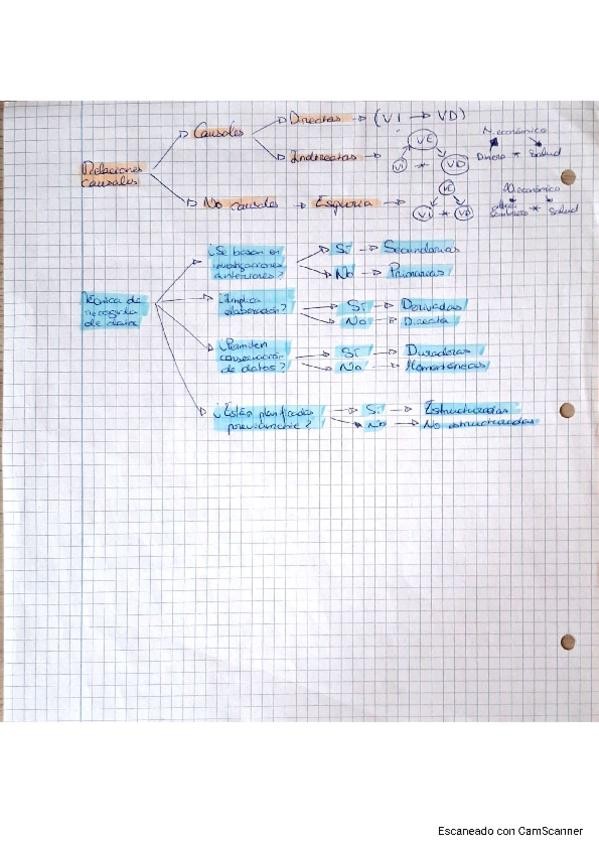 Directas → (VI → VD)
Causales
N. económico
VE
Indirectas →
VI * VD
Dinero * Salud
Relaciones
causales
VE
N. económico
No causales → Espuria →
VI * VD
* Salud
¿Se basan en
investigaciones
anteriores?
Sí → Secundarias
No → Primarias
Técnica de
recogida
de datos
¿Implica
elaboración?
Sí → Derivadas
No → Directa
¿Permiten
conservación
de datos?
Sí → Duraderas
No → Momentáneas
¿Están planificadas
previamente?
→ Sí → Estructuradas
→ No → No estructuradas
Escaneado con CamScanner